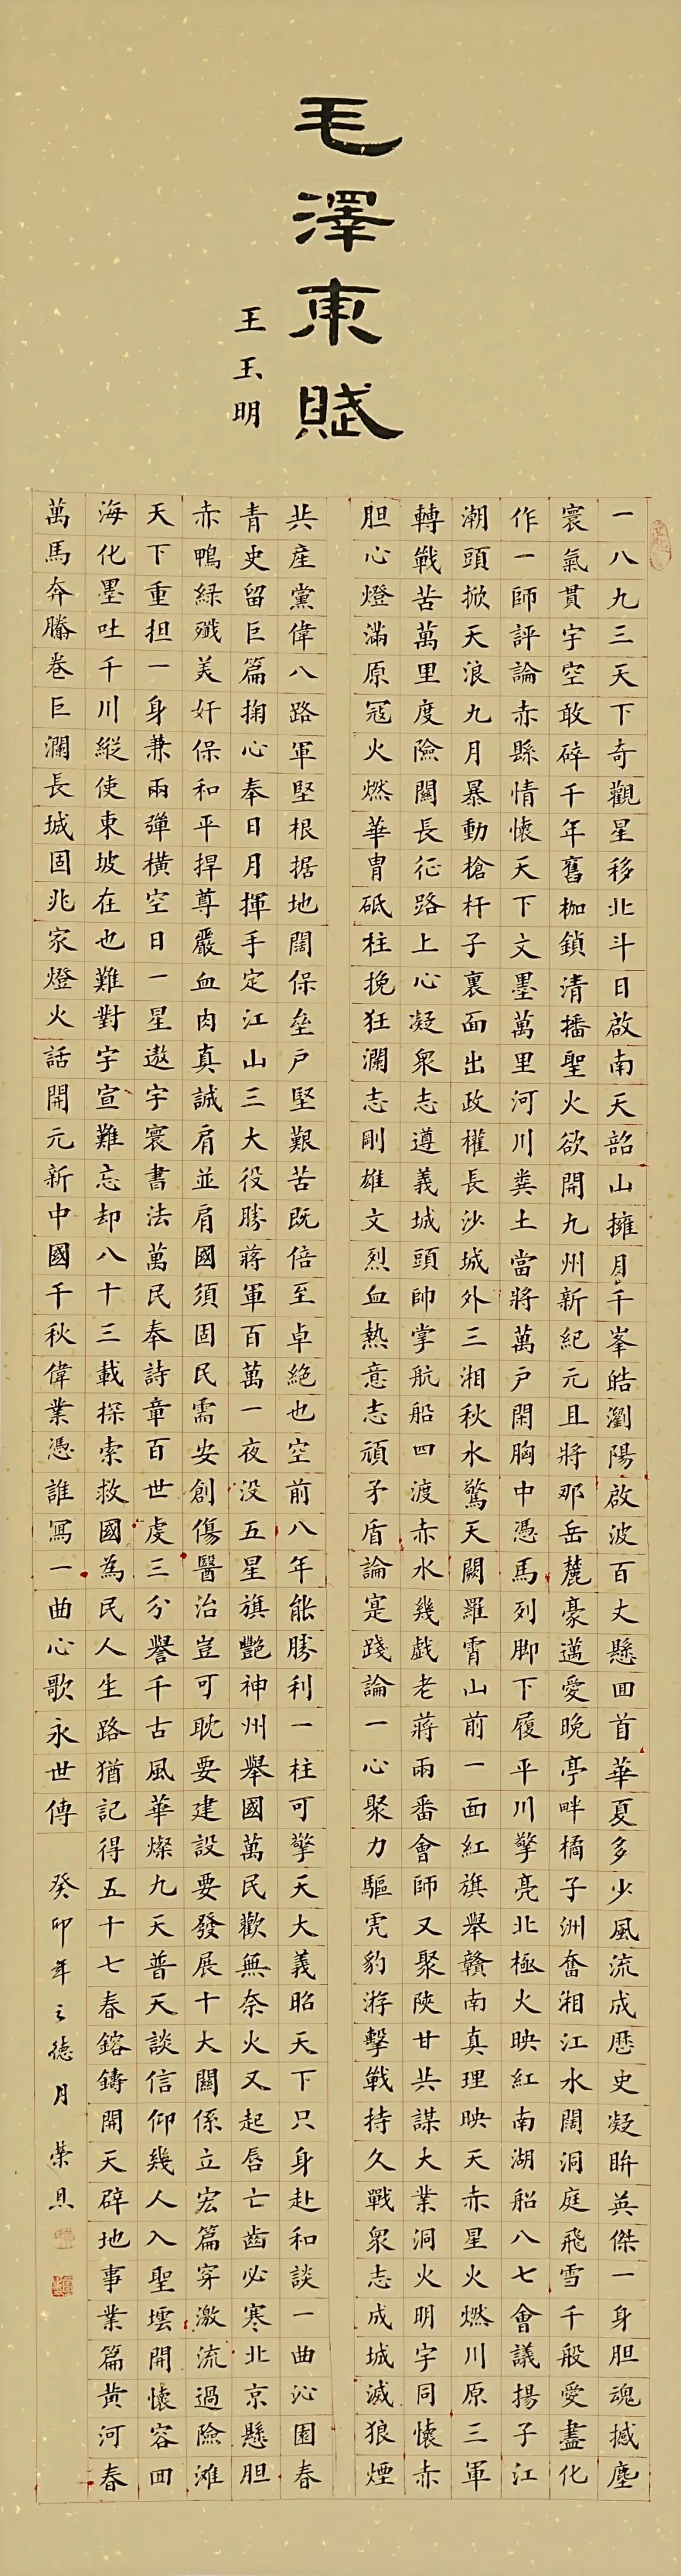 毛澤東賦
王玉明
一八九三天下奇觀星移北斗日啟南天韶山擁月千峯皓瀏陽啟波百丈懸回首華夏多少風流成歷史凝眸英傑一身胆魂撼塵
寰氣貫宇空敢碎千年舊枷鎖清播聖火欲開九州新紀元且將那岳麓豪邁愛晚亭畔橘子洲奮湘江水闊洞庭飛雪千般愛盡化
作一師評論赤縣情懷天下文墨萬里河川糞土當將萬戶閑胸中憑馬列脚下履平川擎亮北極火映紅南湖船八七會議揚子江
潮頭掀天浪九月暴動槍杆子裏面出政權長沙城外三湘秋水驚天闕羅霄山前一面紅旗舉贛南真理映天赤星火燃川原三軍
轉戰苦萬里度險關長征路上心凝衆志遵義城頭帥掌航船四渡赤水幾戲老蔣兩番會師又聚陝甘共謀大業洞火明宇同懷赤
胆心燈滿原寇火燃華胄砥柱挽狂瀾志剛雄文烈血熱意志頑矛盾論寔踐論一心聚力驅虎豹游擊戰持久戰衆志成城滅狼煙
共產黨偉八路軍堅根据地闊保壘戶堅艱苦既倍至卓絕也空前八年能勝利一柱可擎天大義昭天下只身赴和談一曲沁園春
青史留巨篇掬心奉日月揮手定江山三大役勝蔣軍百萬一夜没五星旗艷神州舉國萬民歡無奈火又起唇亡齒必寒北京懸胆
赤鴨綠殲美奸保和平捍尊嚴血肉真誠肩並肩國須固民需安創傷醫治豈可耽要建設要發展十大關係立宏篇穿激流過險滩
天下重担一身兼兩彈橫空日一星遨宇寰書法萬民奉詩章百世虔三分譽千古風華燦九天普天談信仰幾人入聖壇開懷容回
海化墨吐千川縱使東坡在也難對宇宣難忘却八十三載探索救國為民人生路猶記得五十七春鎔鑄開天辟地事業篇黄河春
萬馬奔騰卷巨瀾長城固兆家燈火話開元新中國千秋偉業憑誰寫一曲心歌永世傳
癸卯年之德月 榮恩